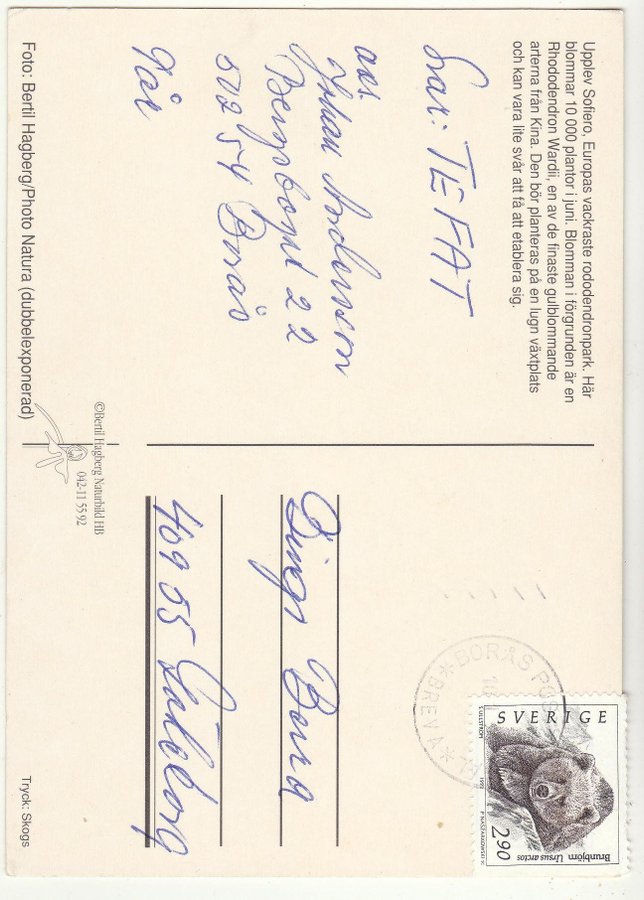 Upplev Sofiero, Europas vackraste rododendronpark. Här
blommar 10 000 plantor i juni. Blomman i förgrunden är en
Rhododendron Wardii, en av de finaste gulblommande
arterna från Kina. Den bör planteras på en lugn växtplats
och kan vara lite svår att få att etablera sig.
Svar: TEFAT
avs.
Johan Andersson
502 54 Borås
Foto: Bertil Hagberg/Photo Natura (dubbelexponerad)
©Bertil Hagberg Naturbild HB
042-11 55 92
Bingo
409 55 Göteborg
Tryck: Skogs
BORÅS
BREV
SVERIGE
S. ULLSTRÖM
P. NASZARKOWSKI SC
Brunbjörn Ursus arctos
2.90